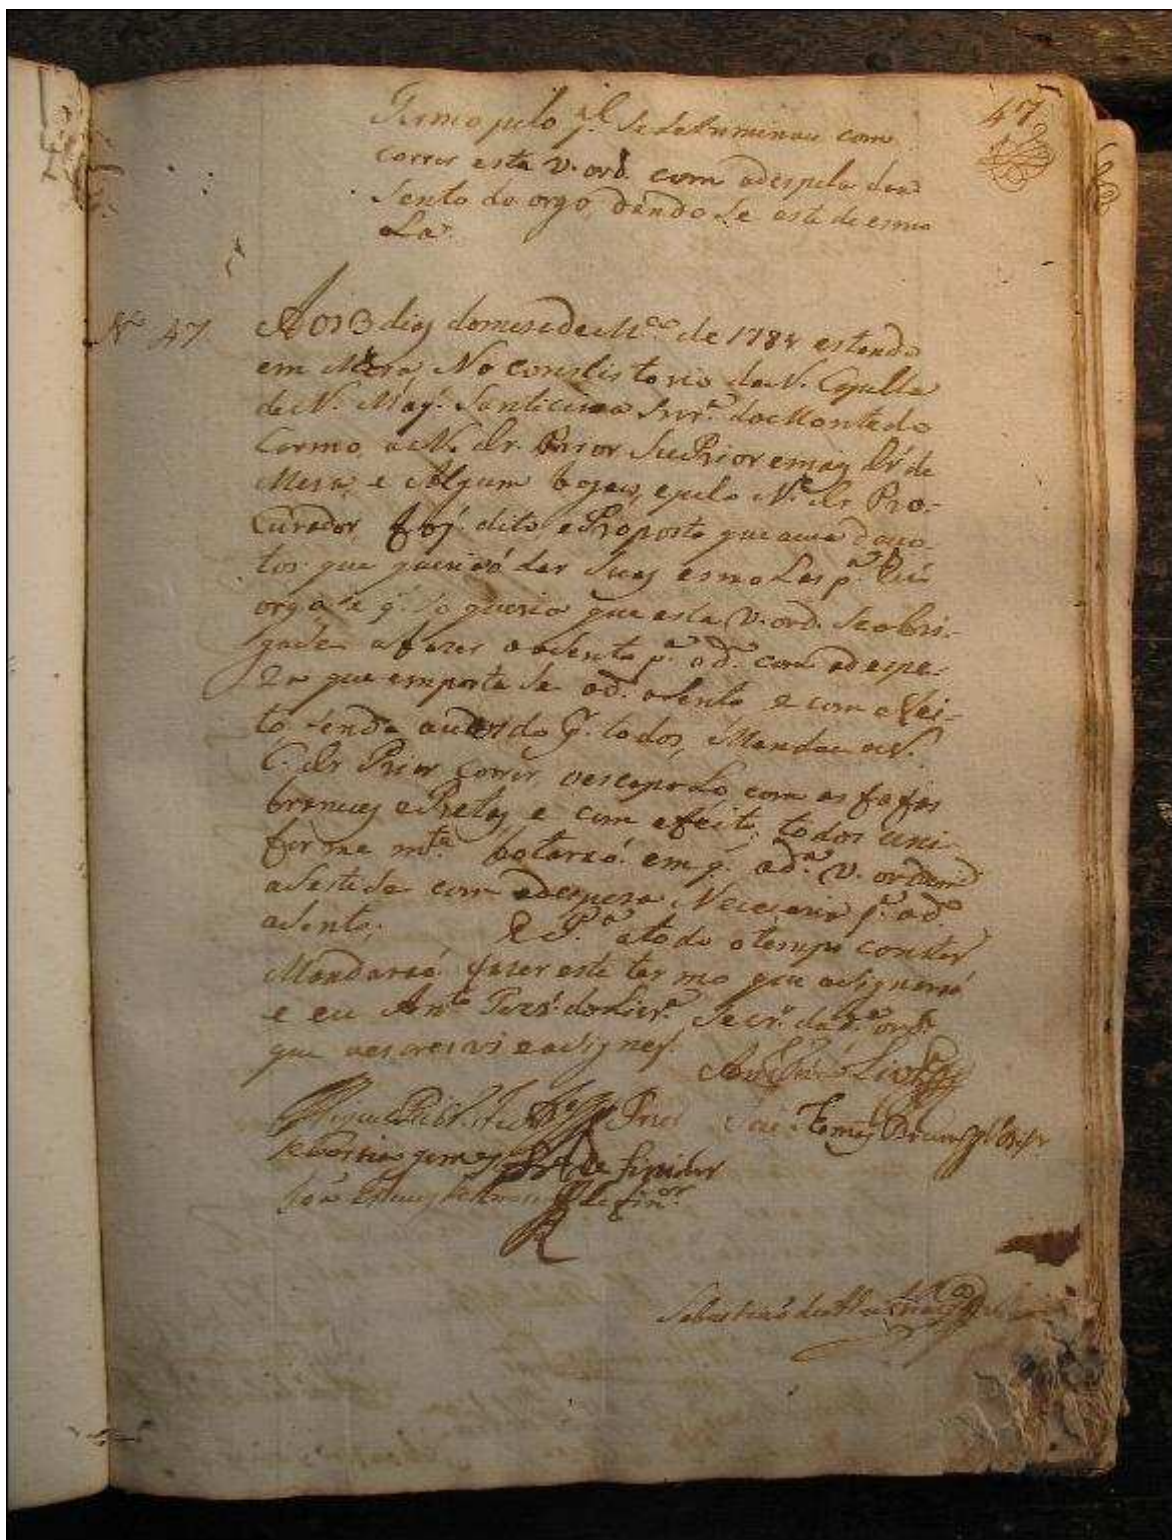 47
Termo pelo q.l se determinou com
correr esta V. ord. com adespeza do as
sento do orgo, dando se este de esmo
La.
N.º 47
Aos 3 dias do mes de M.ço de 1784 estando
em Mesa No concistorio da N. Capella
de N. May. Santicima Snr.ª do Monte do
Carmo, o N. Ir. Prior SuPrior emais Ir. de
Mesa, e Algum, epelo N. C. Ir. Pro-
Curador, foj. dito, e Proposto que avia devo-
tos que queriaó dar suas esmoLas p.ª hú
orgo e q. só queria que esta V. ord. se obri-
gace a fazer o asento p.ª o d.º com adespe-
Za que emporta se o d.º asento e com efei-
to sendo ouvido q. todos, Mandou o N.
C. Ir Prior Correr, o escoporLo com as fafas
brancas e Pretas e com efeito todos uni-
forme m.te botaraó em q. ad.ª V. ordem
asesti se com adespeza Neceçaria p.ª o d.º
asento. E P.ª atodo o tempo constar
Mandaraó fazer este termo que asignaraó
e eu An.to da Secr.º da V. ord.
que o escrevi e asigney.
Prior
Sebastiaó